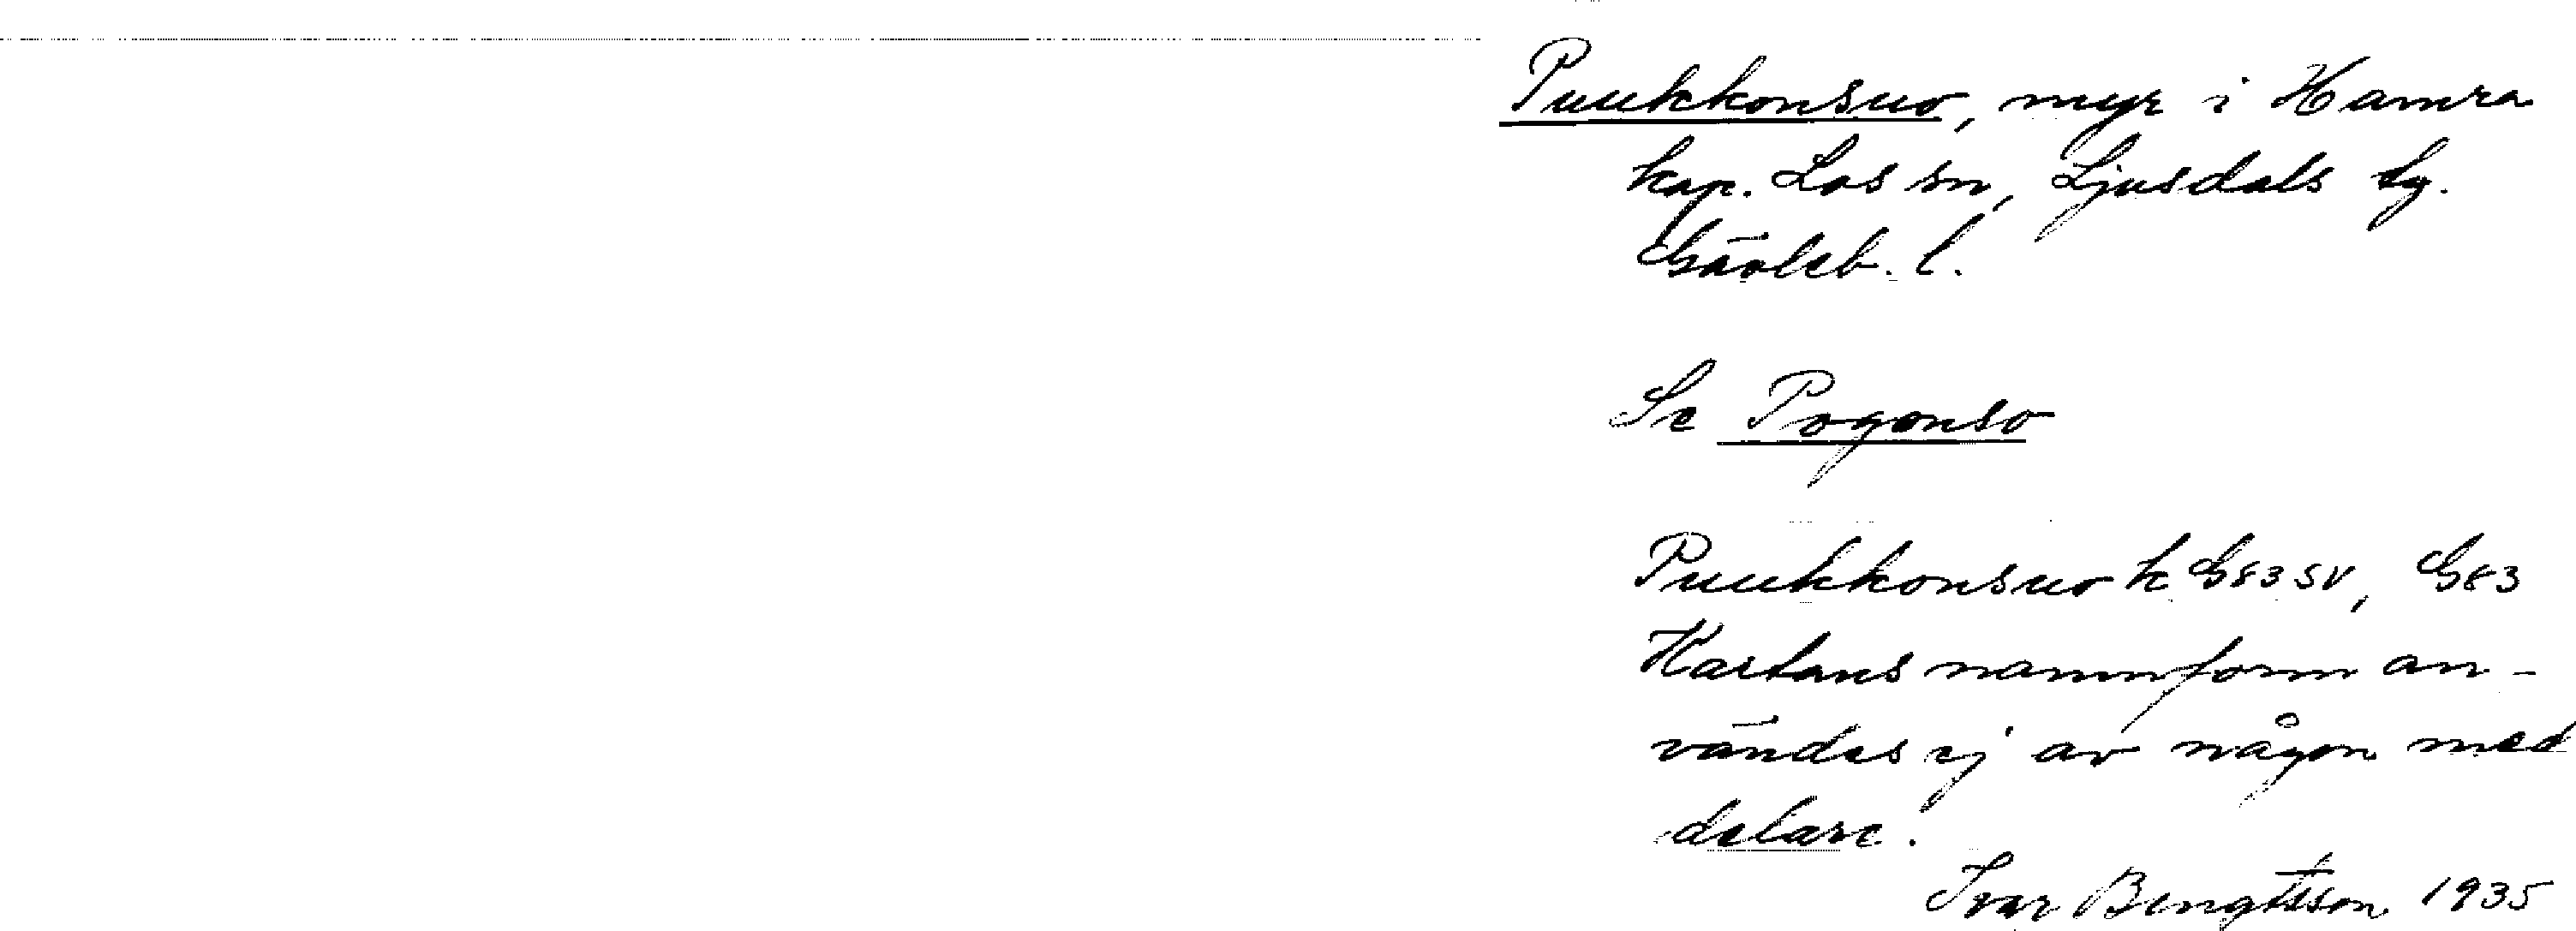 Puukkonsuo, myr i Hamra
kap. Los sn, Ljusdals tg.
Gävleb. l.
Se Pogonso
Puukkonsuo k G83 SV, G83
Kartans namnform an-
vändes ej av någon med
delare.
Ivar Bengtsson 1935